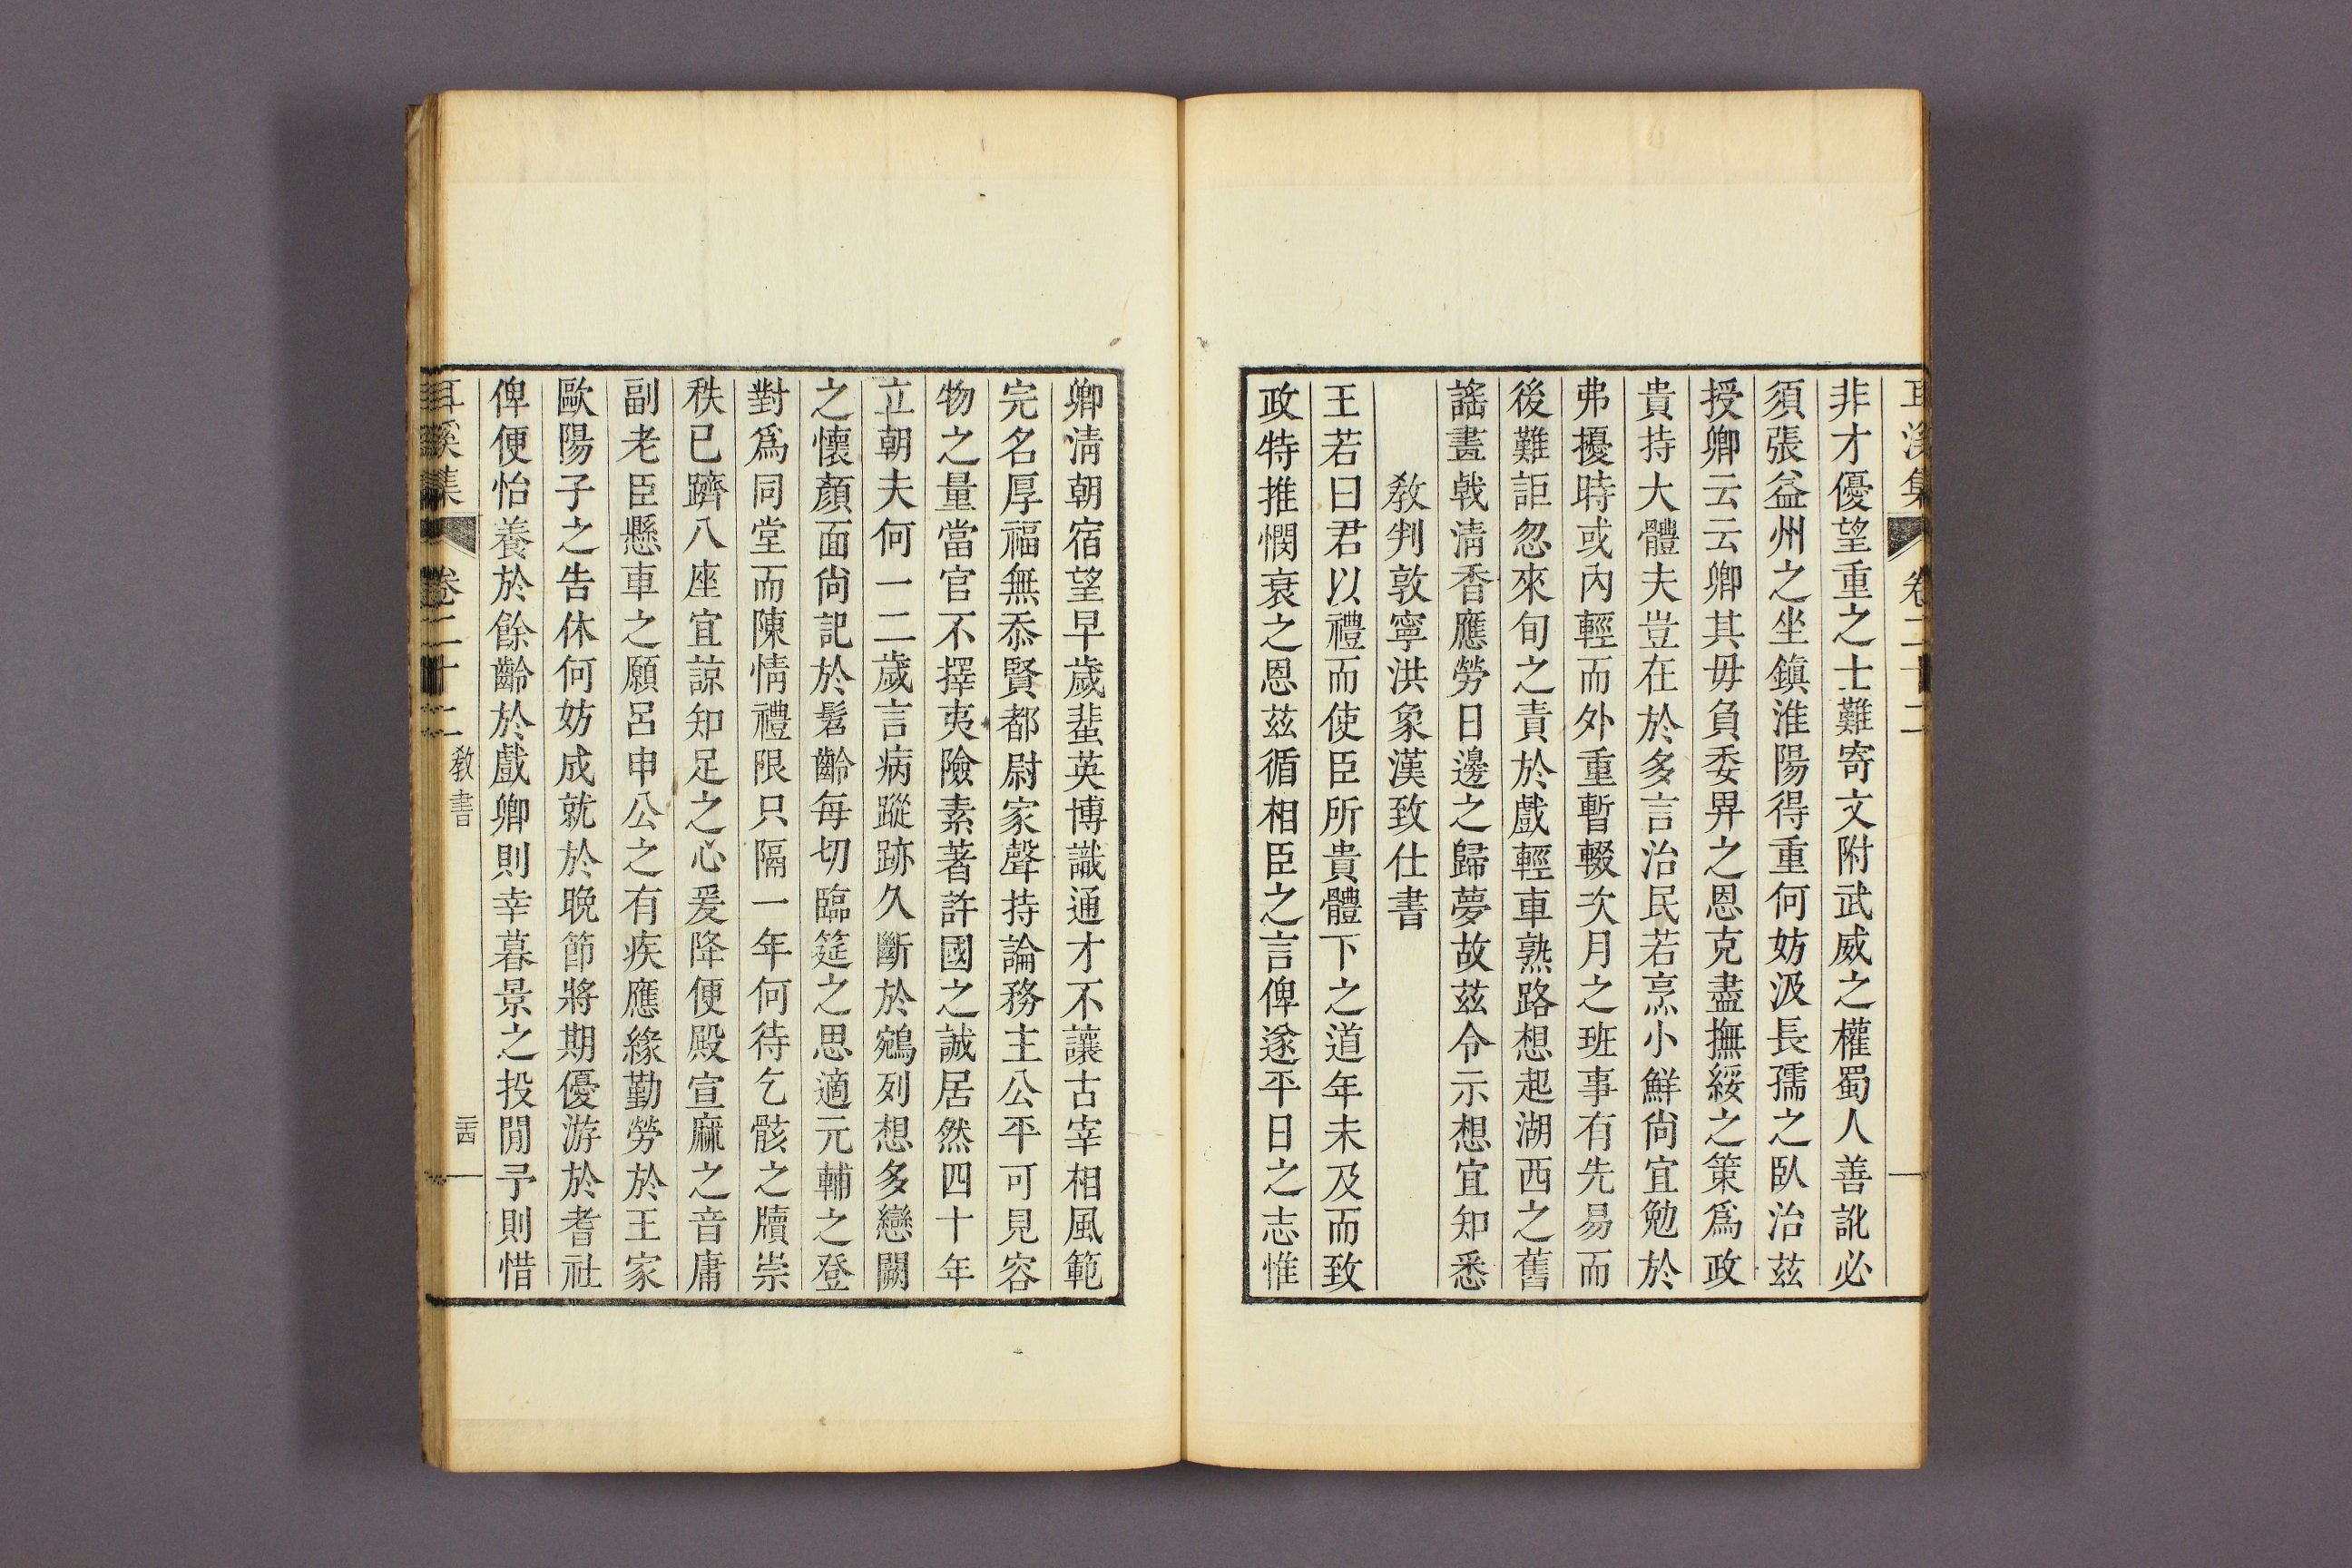 耳溪集 卷二十二
非才優望重之士難寄文附武威之權蜀人善訛必
須張益州之坐鎮淮陽得重何妨汲長孺之臥治玆
授卿云云卿其毋負委畀之恩克盡撫綏之策爲政
貴持大體夫豈在於多言治民若烹小鮮尙宜勉於
弗擾時或內輕而外重暫輟次月之班事有先易而
後難詎忽來旬之責於戲輕車熟路想起湖西之舊
謠畫戟淸香應勞日邊之歸夢故玆令示想宜知悉
敎判敦寧洪象漢致仕書
王若曰君以禮而使臣所貴體下之道年未及而致
政特推憫衰之恩玆循相臣之言俾遂平日之志惟
卿淸朝宿望早歲蜚英博識通才不讓古宰相風範
完名厚福無忝賢都尉家聲持論務主公平可見容
物之量當官不擇夷險素著許國之誠居然四十年
立朝夫何一二歲言病蹤跡久斷於鵷列想多戀闕
之懷顏面尙記於髫齡每切臨筵之思適元輔之登
對爲同堂而陳情禮限只隔一年何待乞骸之牘崇
秩已躋八座宜諒知足之心爰降便殿宣麻之音庸
副老臣懸車之願呂申公之有疾應緣勤勞於王家
歐陽子之告休何妨成就於晚節將期優游於耆社
俾便怡養於餘齡於戲卿則幸暮景之投閒予則惜
耳溪集 卷二十二 敎書 二十四